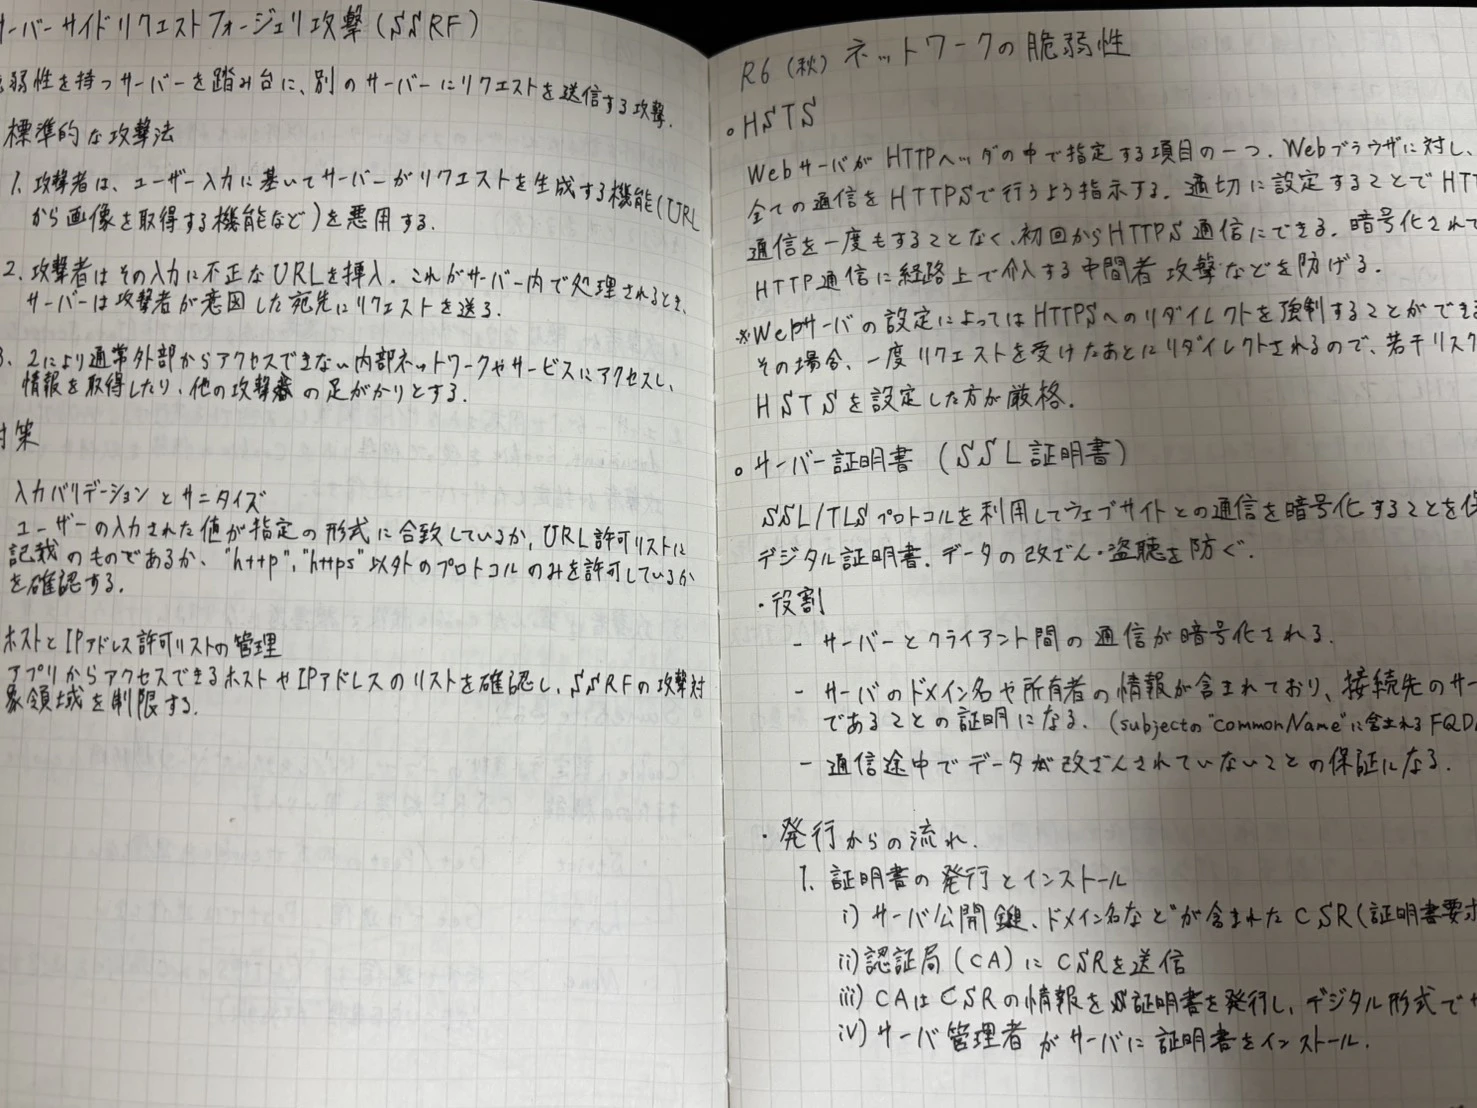 ーバーサイドリクエストフォージェリ攻撃(SSRF)
弱性を持つサーバーを踏み台に、別のサーバーにリクエストを送信する攻撃.
標準的な攻撃法
1. 攻撃者は、ユーザー入力に基いてサーバーがリクエストを生成する機能(URL
から画像を取得する機能など)を悪用する.
2. 攻撃者はその入力に不正なURLを挿入. これがサーバー内で処理されるとき、
サーバーは攻撃者が意図した宛先にリクエストを送る.
3. 2により通常外部からアクセスできない内部ネットワークやサービスにアクセスし、
情報を取得したり、他の攻撃の足がかりとする.
策
入力バリデーションとサニタイズ
ユーザーの入力された値が指定の形式に合致しているか, URL許可リストに
記載のものであるか、"http", "https"以外のプロトコルのみを許可しているか
を確認する.
ホストとIPアドレス許可リストの管理
アプリからアクセスできるホストやIPアドレスのリストを確認し、SSRFの攻撃対
象領域を制限する.
R6(秋) ネットワークの脆弱性
。HSTS
WebサーバがHTTPヘッダの中で指定する項目の一つ. Webブラウザに対し、
全ての通信をHTTPSで行うよう指示する. 適切に設定することでHTT
通信を一度もすることなく、初回からHTTPS通信にできる. 暗号化されて
HTTP通信に経路上で介入する中間者攻撃などを防げる.
※Webサーバの設定によってはHTTPSへのリダイレクトを強制することができ
その場合、一度リクエストを受けたあとにリダイレクトされるので、若干リスク
HSTSを設定した方が厳格.
。サーバー証明書(SSL証明書)
SSL/TLSプロトコルを利用してウェブサイトとの通信を暗号化することを
デジタル証明書. データの改ざん・盗聴を防ぐ.
・役割
- サーバーとクライアント間の通信が暗号化される.
- サーバのドメイン名や所有者の情報が含まれており、接続先のサー
であることの証明になる. (subjectの"commonName"に含まれるFQD
- 通信途中でデータが改ざんされていないことの保証になる.
・発行からの流れ.
1. 証明書の発行とインストール
i) サーバ公開鍵、ドメイン名などが含まれたCSR(証明書要求
ii) 認証局(CA)にCSRを送信
iii) CAはCSRの情報を証明書を発行し、デジタル形式で
iv) サーバ管理者がサーバに証明書をインストール.